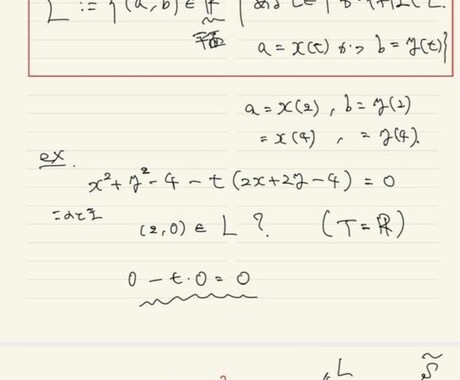 L := {(a, b) ∈ ℝ² | ある t ∈
平面
a = x(t) かつ b = y(t)}
a = x(2) , b = y(2)
= x(4) , = y(4).
ex.
x² + y² - 4 - t (2x + 2y - 4) = 0
このとき
(2,0) ∈ L ? (T = ℝ)
0 - t・0 = 0
L S̃